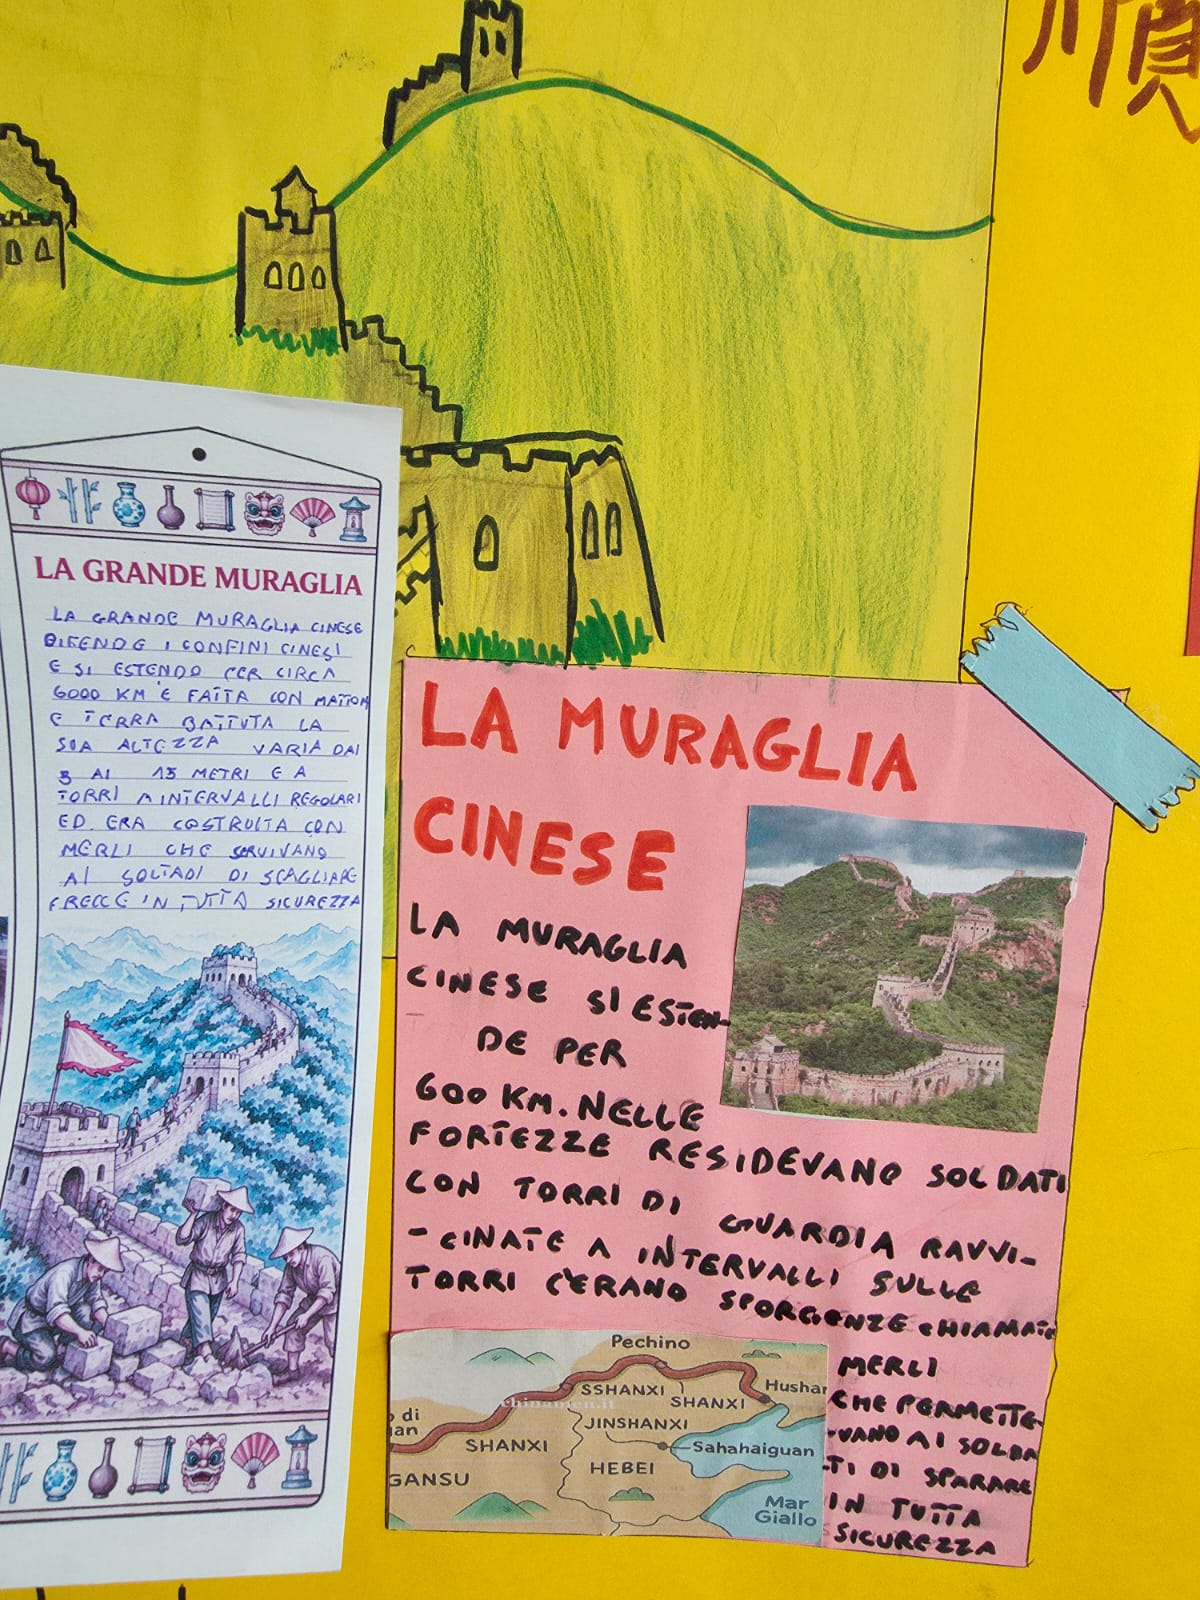 順
LA GRANDE MURAGLIA
LA GRANDE MURAGLIA CINESE
DIFENDE I CONFINI CINESI
E SI ESTENDO PER CIRCA
6000 KM È FATTA CON MATTON
E TERRA BATTUTA LA
SUA ALTEZZA VARIA DAI
3 AI 15 METRI E A
TORRI A INTERVALLI REGOLARI
ED. ERA COSTRUITA CON
MERLI CHE SERVIVANO
AI SOLTADI DI SCAGLIARE
FRECCE IN TUTTA SICUREZZA
LA MURAGLIA
CINESE
LA MURAGLIA
CINESE SI ESTEN-
DE PER
600 KM. NELLE
FORTEZZE RESIDEVANO SOLDATI
CON TORRI DI GUARDIA RAVVI-
- CINATE A INTERVALLI SULLE
TORRI C'ERANO SPORGENZE CHIAMATE
MERLI
CHE PERMETTE-
-VANO AI SOLDA
TI DI SPARARE
IN TUTTA
SICUREZZA
Pechino
SSHANXI
SHANXI
Hushan
chinamen.it
JINSHANXI
o di
uan
SHANXI
Sahahaiguan
GANSU
HEBEI
Mar
Giallo